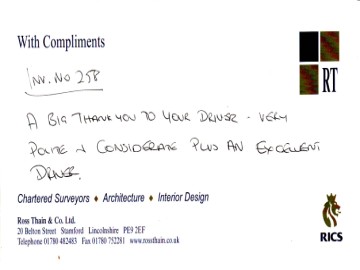 With Compliments
INV. NO 258
RT
A BIG THANK YOU TO YOUR DRIVER - VERY
POLITE & CONSIDERATE PLUS AN EXCELLENT
DRIVER.
Chartered Surveyors ♦ Architecture ♦ Interior Design
Ross Thain & Co. Ltd.
20 Belton Street Stamford Lincolnshire PE9 2EF
Telephone 01780 482483 Fax 01780 752281 www.rossthain.co.uk
RICS